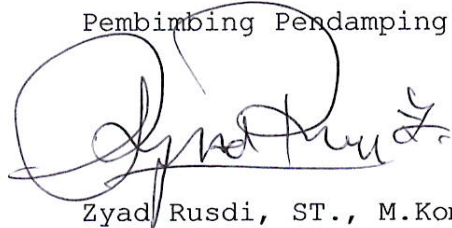 Pembimbing Pendamping
Zyad Rusdi, ST., M.Kom